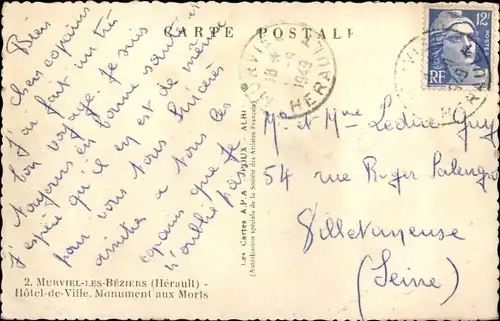 CARTE POSTALE
Bien
chers copains
J'ai fait un très
bon voyage. Je suis
toujours en bonne santé et
j'espère qu'il en est de même
pour vous tous. Sincères
amitiés à tous les
copains que je
n'oublie pas.
MURVIEL
18 * 5-9 1949
HERAULT
12F
RF
M. et Mme Leduc Guy
54 rue Roger Salengro
Villetaneuse
(Seine)
Les Cartes A.P.A. - POUX - ALBI
(Autorisation spéciale de la Société des Artistes Français)
2. MURVIEL-LES-BÉZIERS (Hérault) -
Hôtel-de-Ville. Monument aux Morts